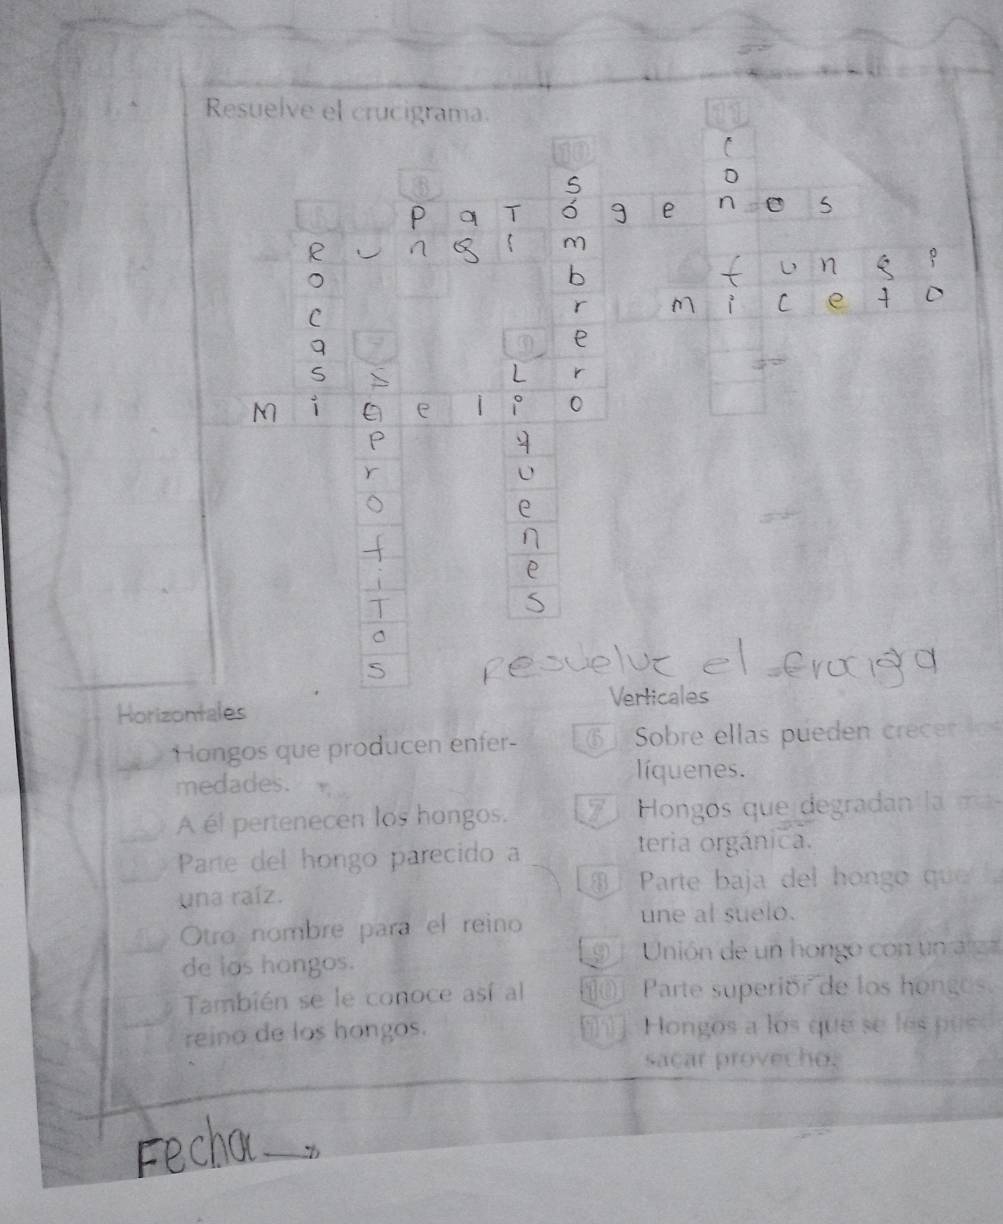 Resuelve el crucigrama.
11
10 C
8 S O
P a T ó g e n o s
R u n g i m
O b f u n g i
C r m i c e t o
a 7 9 e
S S L r
M i c e l i o
P q
r u
O e
f n
i e
T S
O
S
resuelve el
Horizontales
Hongos que producen enfer-
medades.
A él pertenecen los hongos.
Parte del hongo parecido a
una raíz.
Otro nombre para el reino
de los hongos.
También se le conoce así al
reino de los hongos.
Verticales
6 Sobre ellas pueden crecer los
líquenes.
7 Hongos que degradan la ma-
teria orgánica.
8 Parte baja del hongo que la
une al suelo.
9 Unión de un hongo con un alga
10 Parte superior de los hongos.
11 Hongos a los que se les pued
sacar provecho.
Fecha